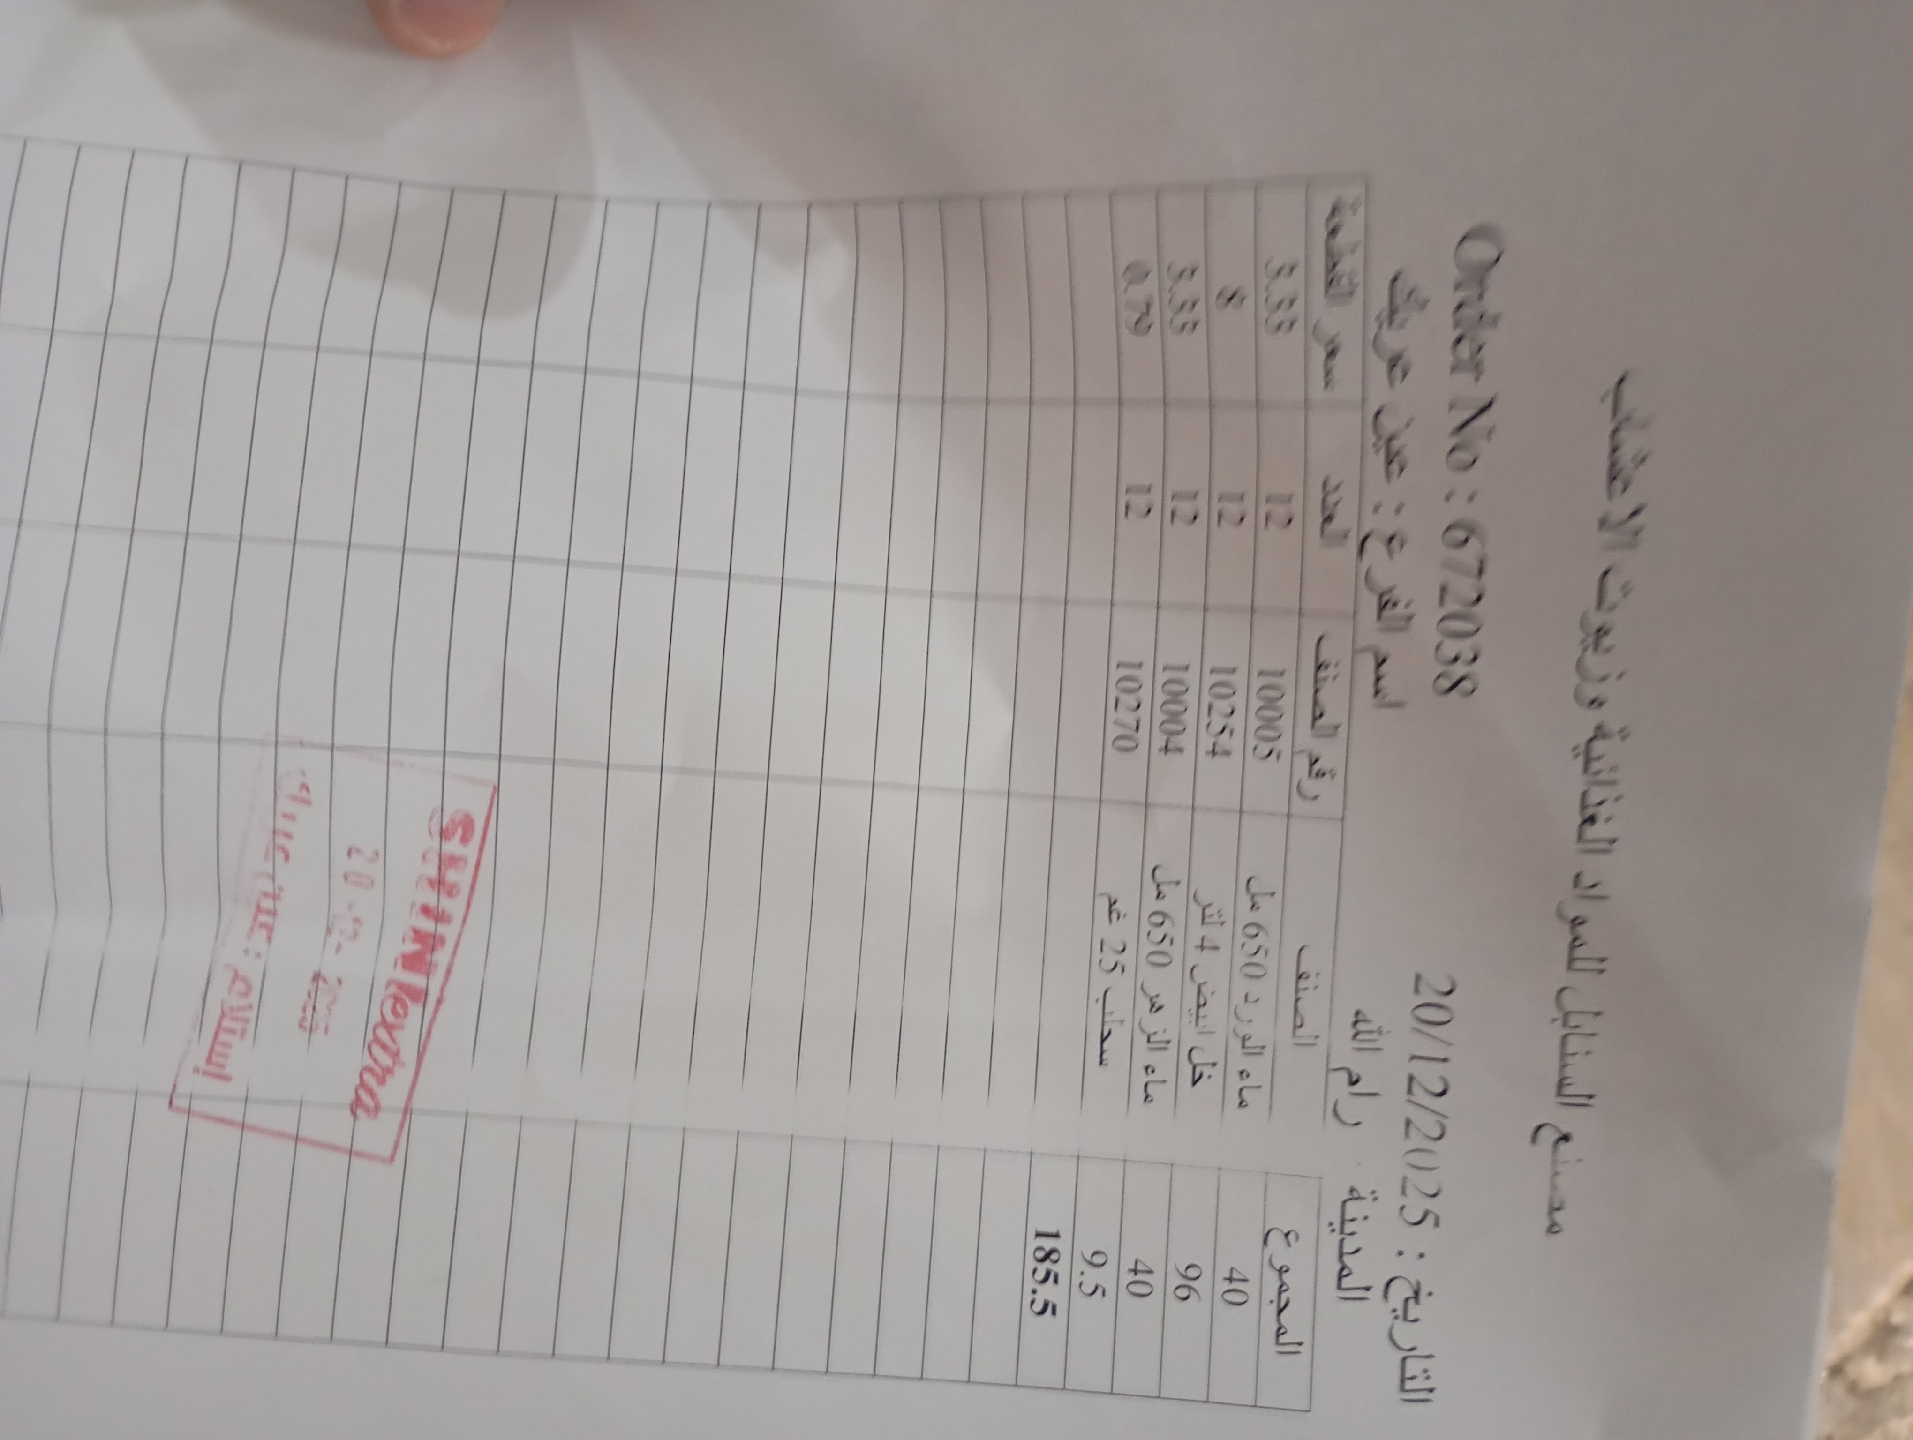 مصنع السنابل للمواد الغذائية وزيوت الاعشاب
التاريخ : 20/12/2025 Order No : 672038
المدينة : رام الله اسم الفرع : عين عريك
المجموع الصنف رقم الصنف العدد سعر القطعة
40 ماء الورد 650 مل 10005 12 3.33
96 خل ابيض 4 لتر 10254 12 8
40 ماء الزهر 650 مل 10004 12 3.33
9.5 سحلب 25 غم 10270 12 0.79
185.5
SHINI extra
20-12-2025
إستلام : عين عريك